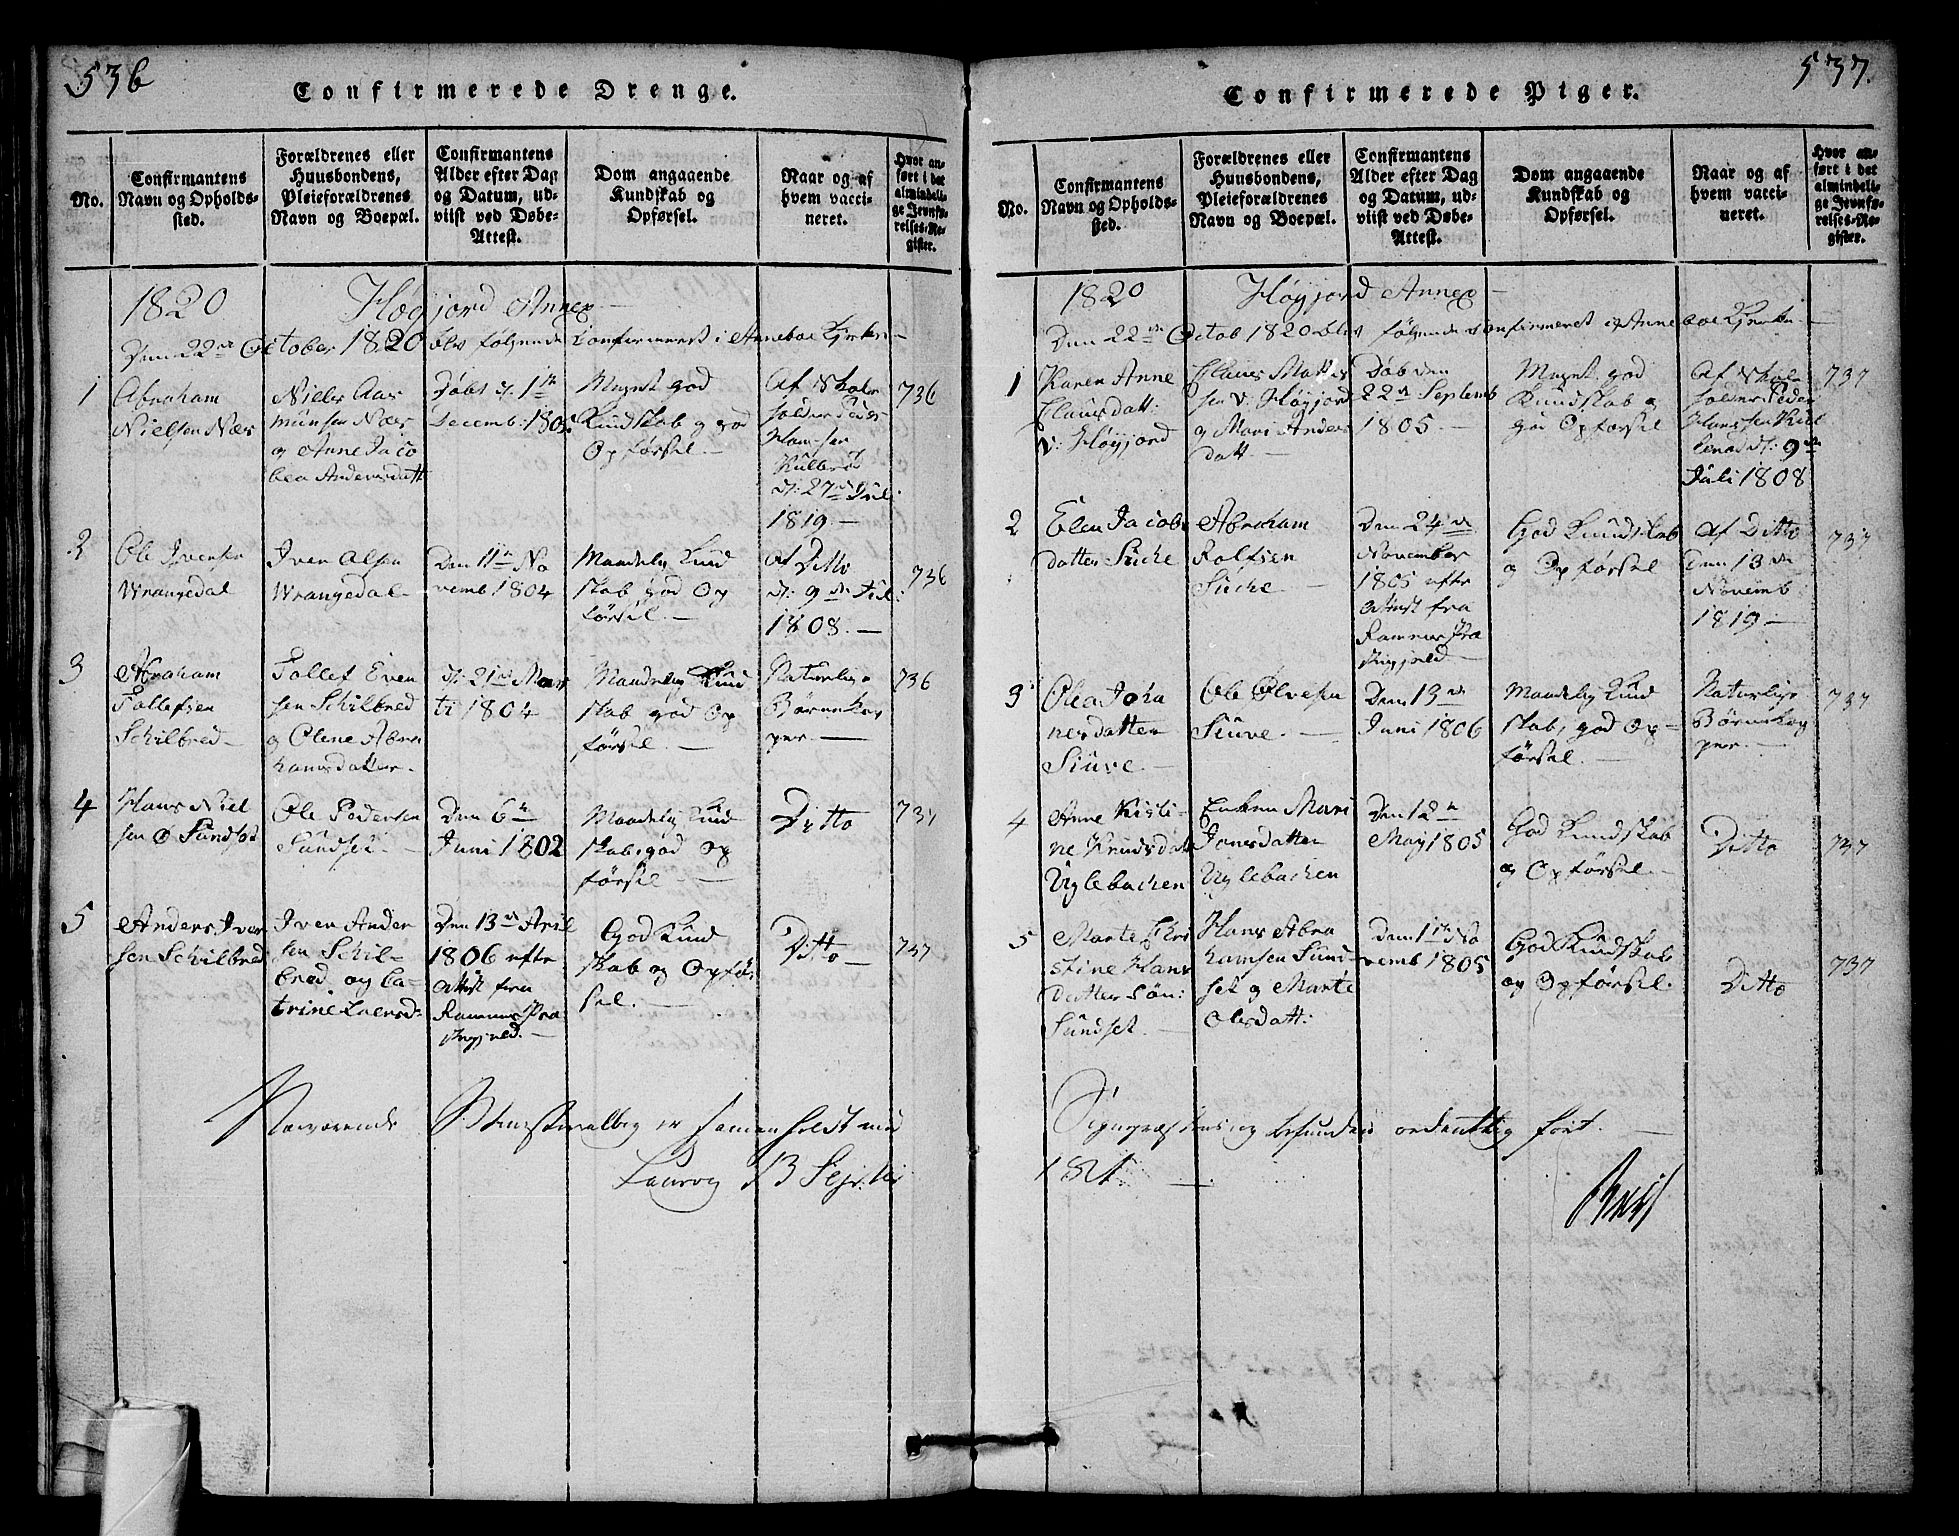 536
Confirmerede Drenge.
No.
Confirmantens
Navn og Opholds-
sted.
Forældrenes eller
Huusbondens,
Pleieforældrenes
Navn og Boepæl.
Confirmantens
Alder efter Dag
og Datum, ud-
viist ved Døbe-
Attest.
Dom angaaende
Kundskab og
Opførsel.
Naar og af
hvem vacci-
neret.
Hvor an-
ført i det
almindeli-
ge Jevnfø-
relses-Re-
gister.
1820 Høyjord Annex
Den 22de October 1820 blev følgende Confirmeret i Anneboe Kjerke
1
Abraham
Nielsen Næs
Niels Aas
munsen Næs
og Anne Jaco
bea Andersdatt
Døbt d: 1te
Decemb: 1805
Meget god
Kundskab og god
Opførsel.
Af Skole
holder Peder
Hansen
d: 27de Juli
1819.
736
2
Ole Iversen
Wrangedal
Iver Olsen
Wrangedal
Den 11te No
vemb 1804
Maadelig Kund
skab god Op
førsel.
Af Ditto
d: 9de Juli
1808.
736
3
Abraham
Tollefsen
Schilbred
Tollef Even
sen Schilbred
og Olene Abra
hamsdatter.
d: 21de Mar
ti 1804
Maadelig Kund
skab god Op
førsel.
Naturlige
Børnekop
per.
736
4
Hans Niel
sen Ø Sundset
Ole Pedersen
Sundset
Den 6te
Juni 1802
Maadelig Kund
skab, god Op
førsel
Ditto
737
5
Anders Iver
sen Schilbred
Iver Ander
sen Schil-
bred og Ca-
trine Larsd:
Den 13de April
1806 efter
Attest fra
Ramnes Præ
stegjeld.
God Kund
skab og Opfør
sel.
Ditto
737
Nærværende Ministerialbog er sammenholdt med
Laurvig 13 Septbr
537.
Confirmerede Piger.
No.
Confirmantens
Navn og Opholds-
sted.
Forældrenes eller
Huusbondens,
Pleieforældrenes
Navn og Boepæl.
Confirmantens
Alder efter Dag
og Datum, ud-
viist ved Døbe-
Attest.
Dom angaaende
Kundskab og
Opførsel.
Naar og af
hvem vacci-
neret.
Hvor an-
ført i det
almindeli-
ge Jevnfø-
relses-Re-
gister.
1820 Høyjord Annex
Den 22de Octob 1820 blev følgende Confirmeret i Anneboe Kjerke
1
Karen Anne
Clausdatt:
v: Høyjord
Claus Mattis
sen v: Høyjord
og Mari Anders
datt.
Døb den
22de Septemb
1805.
Meget god
Kundskab og
god Opførsel
Af Skole
holder Peder
Hanssen
d: 9de
Juli 1808
737
2
Elen Jacobs
datter Sücke
Abraham
Rolfsen
Sücke
Den 24de
November
1805 efter
Attest fra
Ramnes Præ
stegjeld
God Kundskab
og Opførsel
Af Ditto
den 13de
Novemb
1819
737
3
Olea Joha
nesdatter
Siuve
Ole Olvesen
Siuve
Den 13de
Juni 1806
Maadelig Kund
skab, god Op-
førsel.
Naturlige
Børnekop
per.
737
4
Anne Kirsti-
ne Knudsdatt
Uglebachen
Enken Mari
Jonsdatter
Uglebachen
Den 12te
May 1805
God Kundskab
og Opførsel.
Ditto
737
5
Marte Chri
stine Hans
datter Søn:
Sundset
Hans Abra
hamsen Sund-
set og Marte
Olesdatt:
Den 1te No
vemb 1805
God Kundskab
og Opførsel.
Ditto
737
og befunden ordentlig ført.
1821